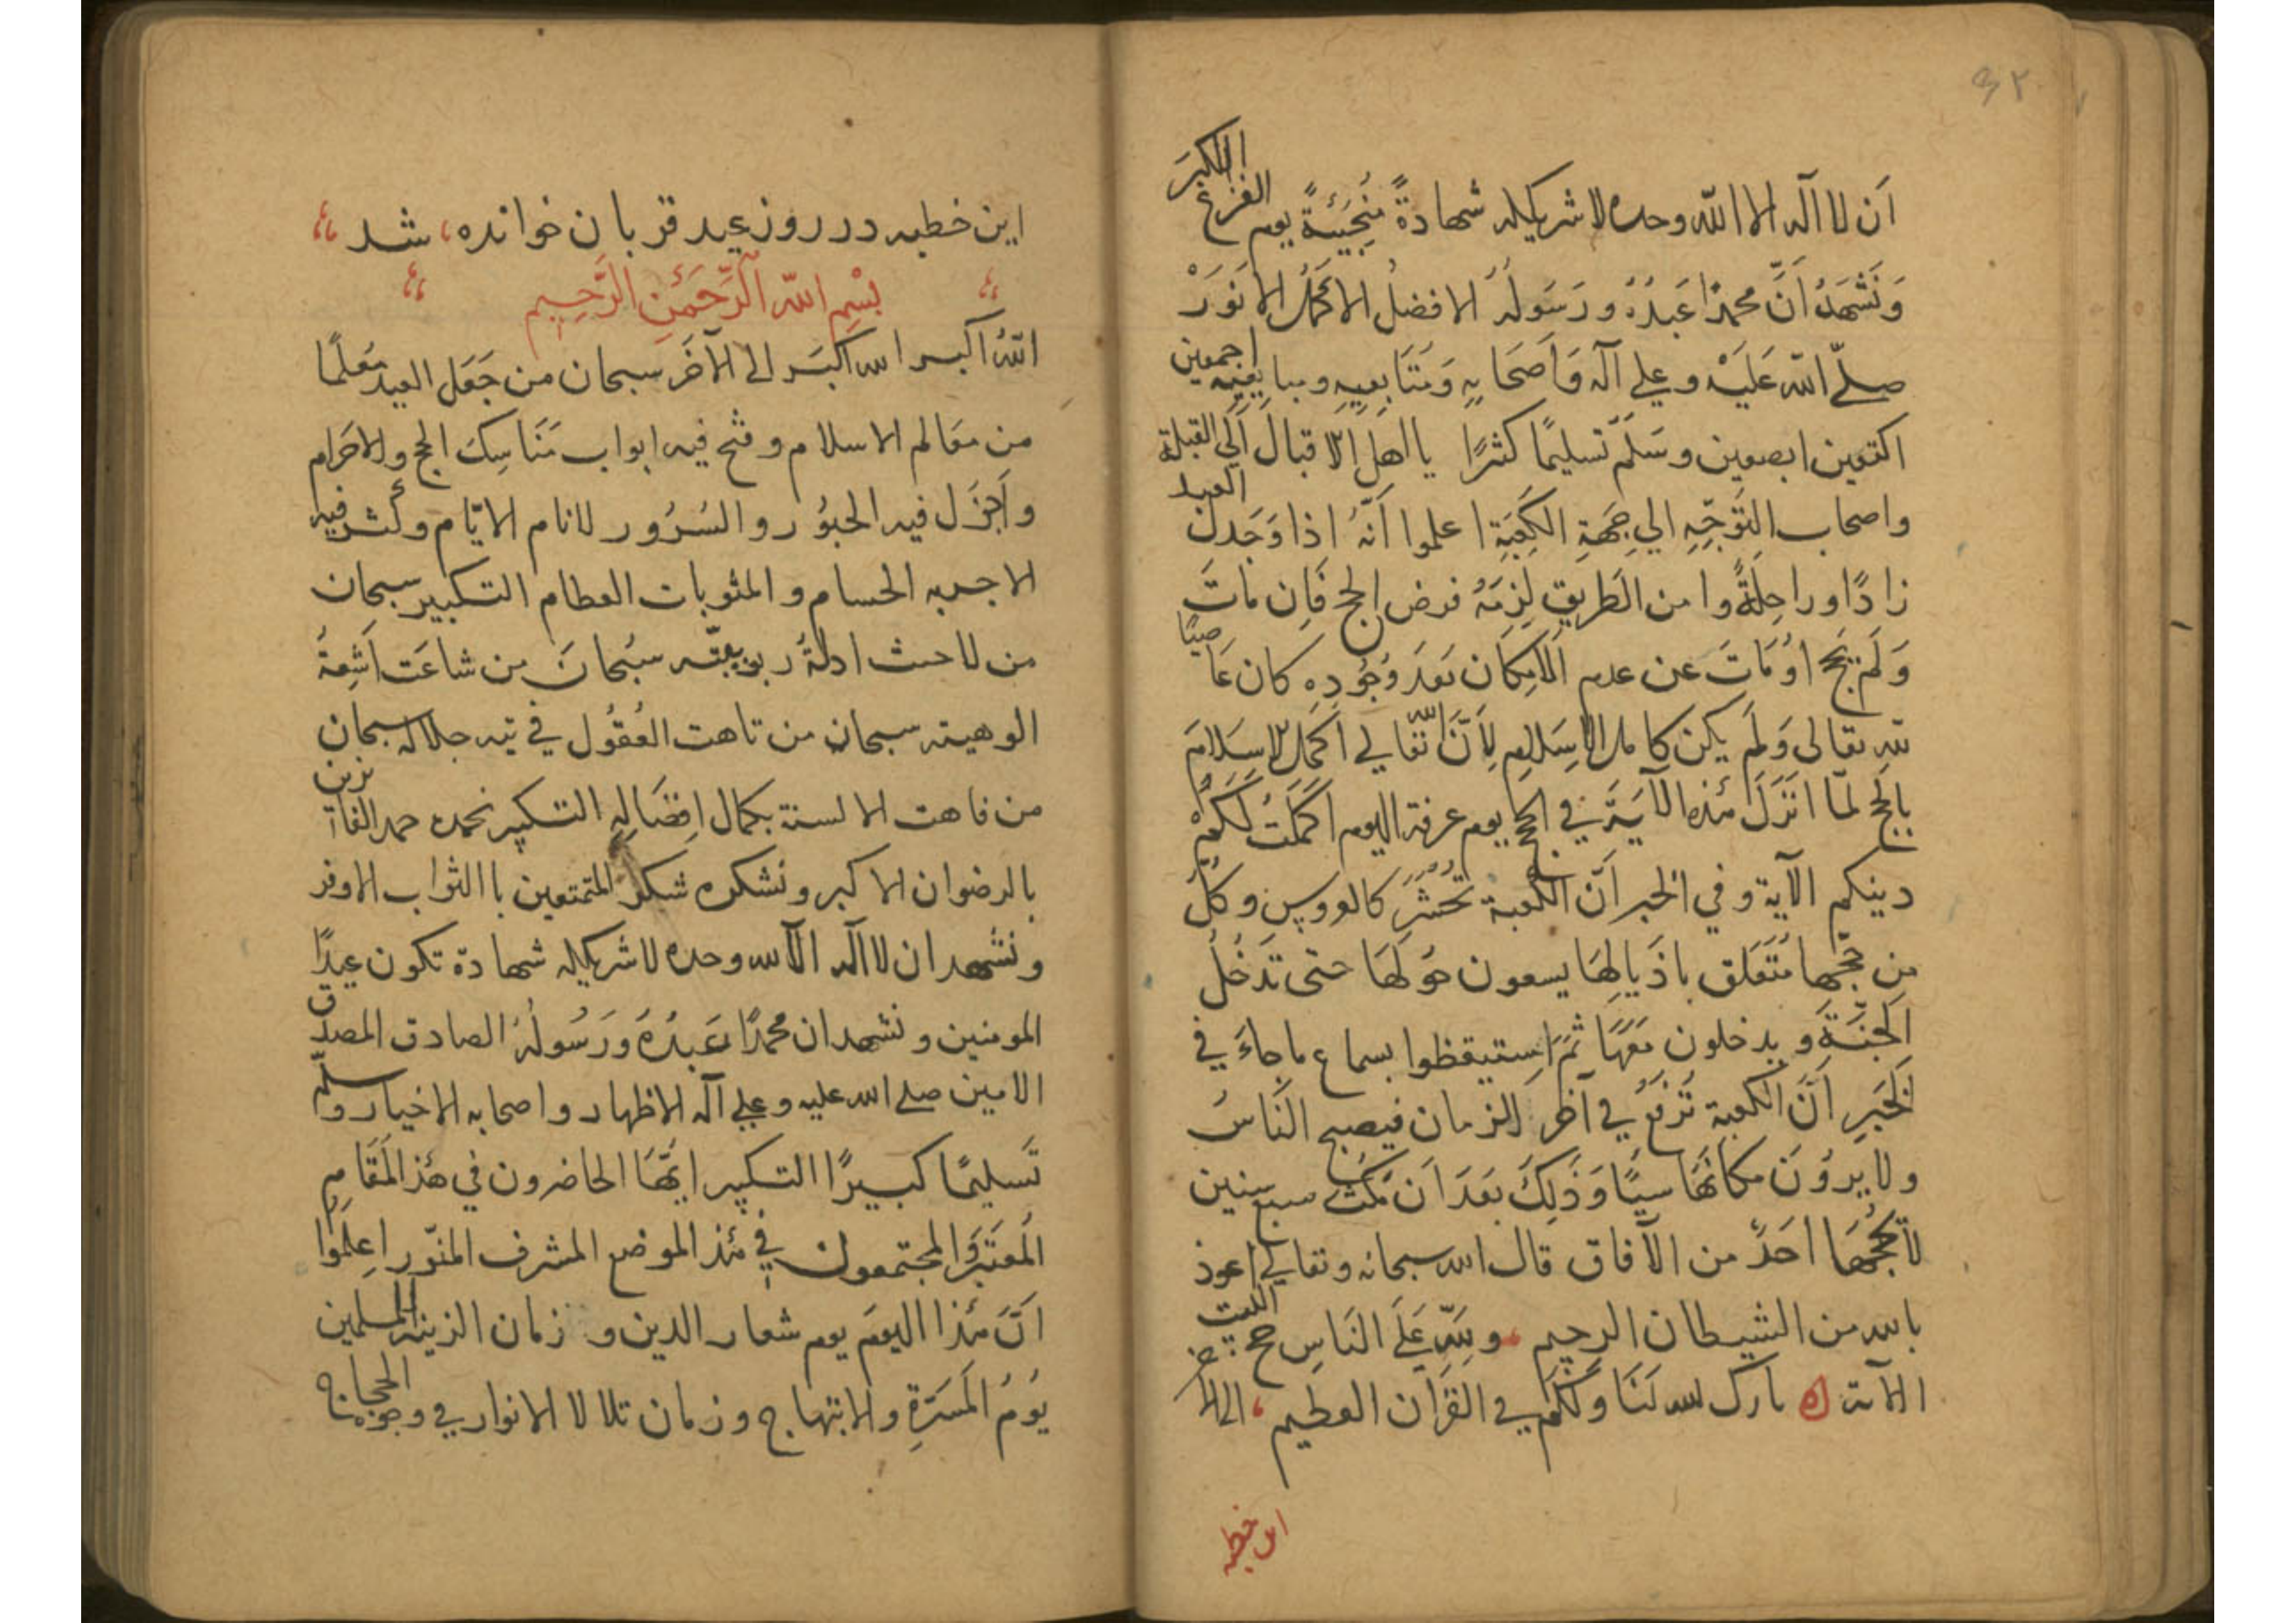 ٤٢
اَن لا اله الا الله وحده لا شريكله شهادةً مُنْجِيَئةً يوم الفزع الاكبرَ
وَنَشْهَدُ اَنَّ محمدًا عَبدُهُ ورَسَولُهُ الافضلُ الاكملُ الانوَرْ
صلّى الله عَلَيْه وعلى آله وَاَصَحَابِهِ وَمَتَابِعيِهِ ومبايعيِهِ اجمعين
اكتعين ابصعين وسَلَّم تسليمًا كثرًا يا اهل الاقبال اِلَى القبلة
واصحاب التَوَجِّهِ الي جِهَةِ الكَعَبَةِ اعلموا اَنَّهُ اذا وَجَدَ العبد
زادًا وراحِلَةً وامن الطَريقِ لَزِمَهُ فرض الحج فَاِن مَاتَ
وَلَم يَحج اوُمَاتَ عن عدم الامِكَان بَعدَ وُجُودِهِ كان عَاصيًا
لله تعالى وَلَم يكن كامل الاسِلام لِاَنَّ الله تعالي اكمل الاسِلامَ
بِالحج لمّا انَزَلَ هذه الآيَةَ في الحج يوم عرفة اليوم اكمَلَتُ لَكُمْ
دينكم الآية وفي الخبر اَنَّ الكعبة تُحُشَرُ كالعروس وكلُّ
من حَجّها مُتَعَلق باذَيالِهَا يسعون حَوُلَهَا حتى تَدَخُلُ
الجَنَّةَ ويدخلون مَعَهَا ثمَّ اسِتيقظوا بسماع ماجاءَ في
الخَبَرِ اَنَّ الكعبة تُرَفَعُ في آخر الزمان فيصبح النَاسُ
ولا يرَوُنَ مكانَهَا سيًا وَذَلِكَ بَعَدَ اَن مَكَثَ سبع سنين
لا يَحُجُّهَا احَدً من الآفاق قال الله سبحانه وتعالي اعوذ
بالله من الشيطان الرجيم ولِلّهِ عَلَى النَاسِ حج البيت
الآية بارك الله لَنَا وَلَكُم في القرَان العظيم الى الآخر
اين خطبه
اين خطبه در روز عيد قربان خوانده شد
بِسْمِ الله الرَّحَمَنِ الرَّحِيِم
اللهُ اكبر الله اكبَر الى الآخَر سبحان من جَعَل العيد مَعَلَمًا
من مَعَالم الاسلام وفتح فيه ابواب مَنَاسِكَ الحج والاحَرام
واَجَزَل فيه الحبُوُر والسُرُور للانام الايّام وكَثر فيه
الاجربه الحسام والمثوبات العظام التكبير سبحان
من لاحت ادلةُ ربوبيّته سبُحانَ من شاعَت اَشِعةُ
الوهيته سبحانه من تاهت العُقوُل في تيه جلاله سبحان
من فاهت الالسنة بكمال اِفضَالِهِ التكبير نحمده حمد الفائزين
بالرضوان الاكبر ونشكره شكر المتمتعين باالثواب الاوفر
ونشهد ان لا اله الا الله وحده لا شريكله شهادة تكون عيدًا
المومنين ونشهد ان محمدًا عَبدُهَ وَرَسُولُهُ الصادق المصدّق
الامين صلے الله عليه وعلي آله الاظهار واصحابه الاخيار وسلّم
تَسليمًا كبيرًا التكبير ايُّهَا الحاضرون في هذ المَقَامِ
المَعَتَبَر وَالمجتمعون في هَذ الموضع المشرف المنّور اِعِلَموُا
اَنَّ هَذا اليومَ يوم شعار الدين و زمان الزينة المسلمين
يَوُمُ المَسَرّةِ والابتهاج وزمان تلالا الانوار في وجوه الحجاج